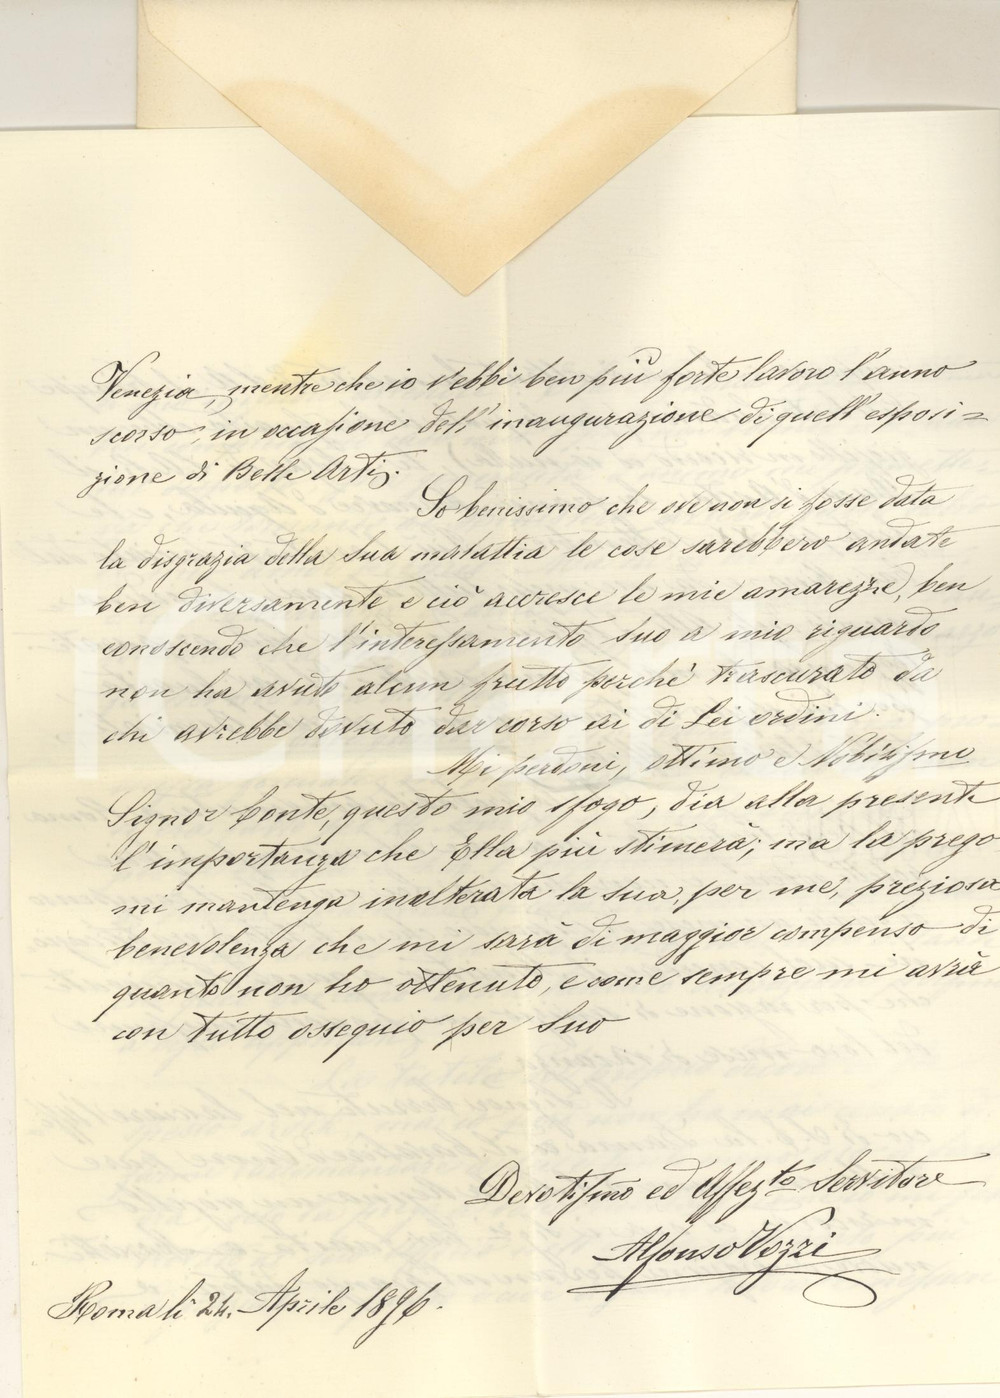 Venezia, mentre che io v'ebbi ben più forte lavoro l'anno
scorso, in occasione dell'inaugurazione di quell'esposi=
zione di Belle Arti.
So benissimo che ove non si fosse data
la disgrazia della Sua malattia le cose sarebbero andate
ben diversamente e ciò accresce le mie amarezze, ben
conoscendo che l'interessamento Suo a mio riguardo
non ha avuto alcun frutto perchè trascurato da
chi avrebbe dovuto dar corso ai di Lei ordini.
Mi perdoni, ottimo e Nobilissimo
Signor Conte, questo mio sfogo, dia alla presente
l'importanza che Ella più stimerà; ma la prego
mi mantenga inalterata la Sua, per me, preziosa
benevolenza che mi sarà di maggior compenso di
quanto non ho ottenuto, e come sempre mi avrà
con tutto ossequio per Suo
Devotissmo ed Affezto Servitore
Alfonso Vozzi
Roma li 24. Aprile 1896.